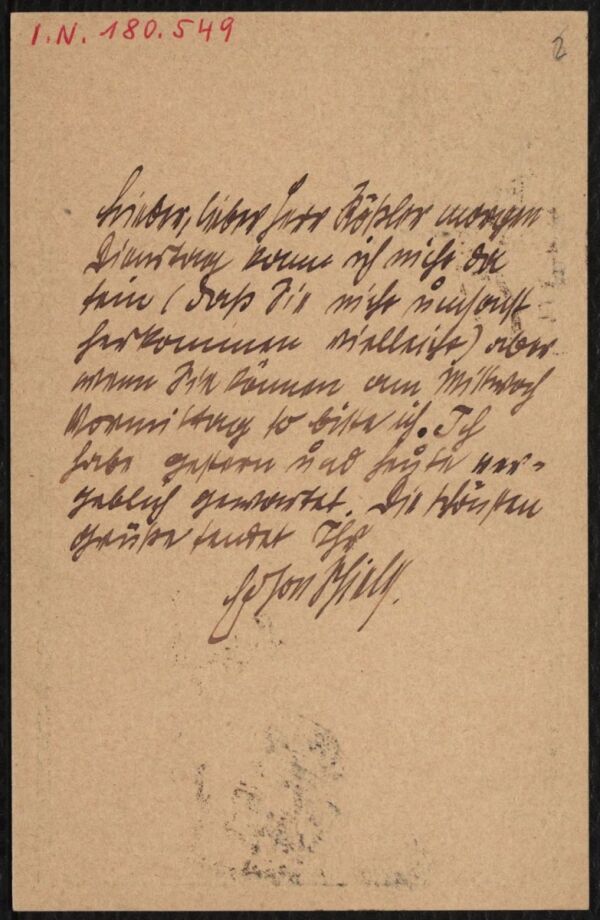 I.N. 180.549
2
Lieber, lieber Herr Rößler morgen
Dienstag kann ich nicht da
sein (daß Sie nicht umsonst
herkommen vielleicht) aber
wenn Sie können am Mittwoch
Vormittag so bitte ich. Ich
habe gestern und heute ver-
geblich gewartet. Die schönsten
Grüße sendet Ihr
Egon Schiele.